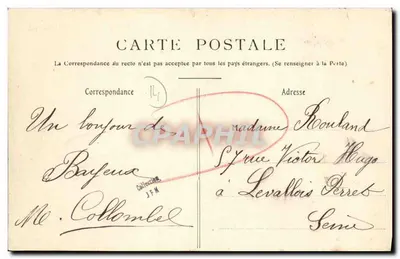 CARTE POSTALE
La Correspondance du recto n'est pas acceptée par tous les pays étrangers. (Se renseigner à la Poste)
Correspondance
14
Adresse
Un bonjour de
Bayeux
M. Collombel
Madame Rouland
57 rue Victor Hugo
à Levallois Perret
Seine
CPAPHIL
Collection